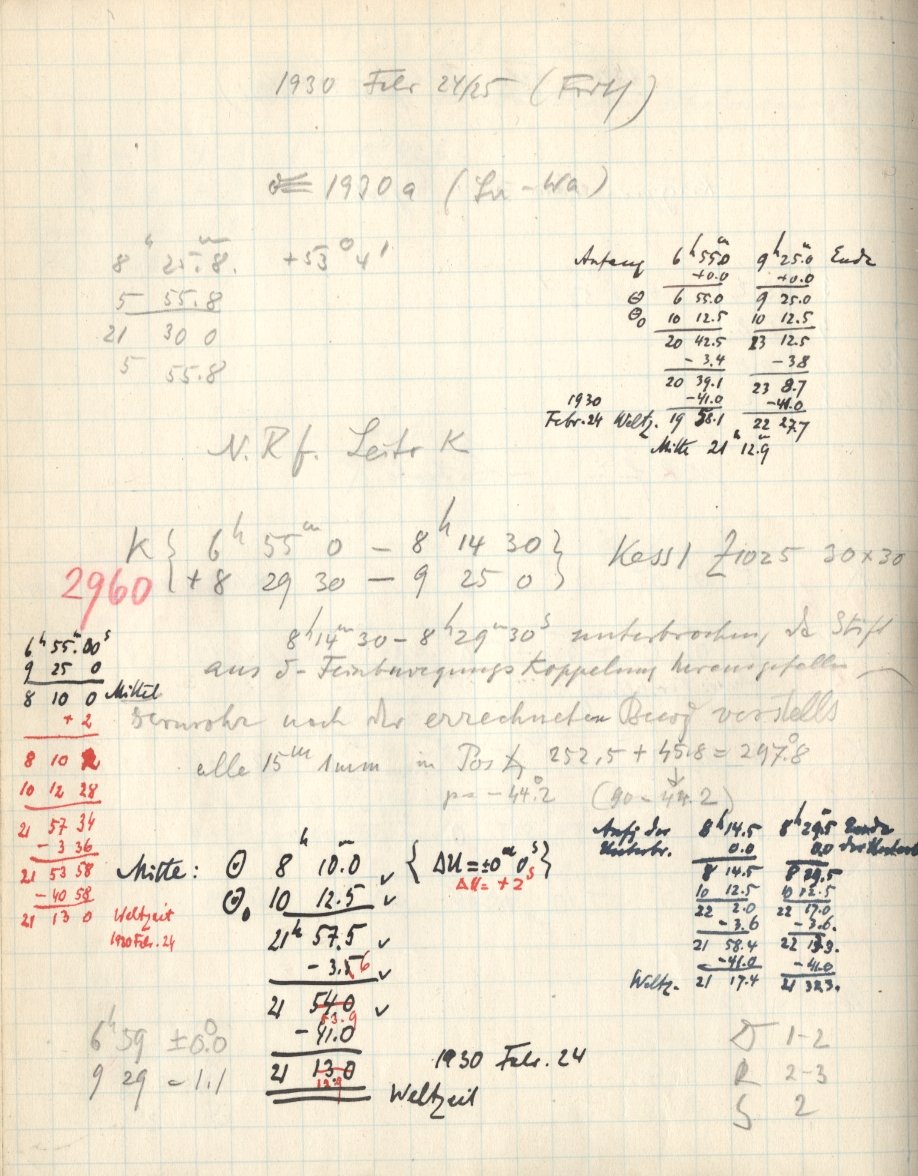 1930 Febr 24/25 (Forts)
1930a (Su-Wa)
8ʰ 25.8ᵐ. +53° 4'
5 55.8
21 30 0
5 55.8
Anfang 6ʰ 55ᵐ.0 9ʰ 25ᵐ.0 Ende
+0.0 +0.0
Θ 6 55.0 9 25.0
Θ₀ 10 12.5 10 12.5
20 42.5 23 12.5
- 3.4 - 3.8
20 39.1 23 8.7
1930 -41.0 -41.0
Febr. 24 Weltz. 19 58.1 22 27.7
Mitte 21ʰ 12.9ᵐ
N. Rf. Leitr K
K { 6ʰ 55ᵐ 0 - 8ʰ 14 30 } Kass 1 Z1025 30×30
2960 { +8 29 30 - 9 25 0 }
8ʰ14ᵐ30 - 8ʰ29ᵐ30ˢ unterbrochen, da Stift
aus δ-Feinbewegungskoppelung herausgefallen
Fernrohr nach der errechneten Beweg verstellt
alle 15ᵐ 1mm in Pos ∡ 252,5 + 45.8 = 297.°8
p = -44.°2 (90 - 44.2)
6ʰ 55ᵐ.00ˢ
9 25 0
8 10 0 Mittel
+ 2
8 10 2
10 12 28
21 57 34
- 3 36
21 53 58
- 40 58
21 13 0 Weltzeit
1930 Febr. 24
Mitte: Θ 8ʰ 10.0ᵐ ✓ { ΔU = ±0ᵐ 0ˢ }
ΔU = +2ˢ
Θ₀ 10 12.5 ✓
21ʰ 57.5 ✓
- 3.5 6 ✓
21 54.0 ✓
53.9
- 41.0
21 13.0
12.9
Weltzeit
1930 Febr. 24
Anfg der 8ʰ14.5 8ʰ29.5ᵐ Ende
Unterbr. 0.0 0.0 der
8 14.5 8 29.5
10 12.5 10 12.5
22 2.0 22 17.0
- 3.6 - 3.6.
21 58.4 22 13.3.
-41.0 -41.0
Weltz. 21 17.4 21 32.3.
6ʰ 59 ±0.°0
9 29 - 1.1
D 1-2
R 2-3
S 2